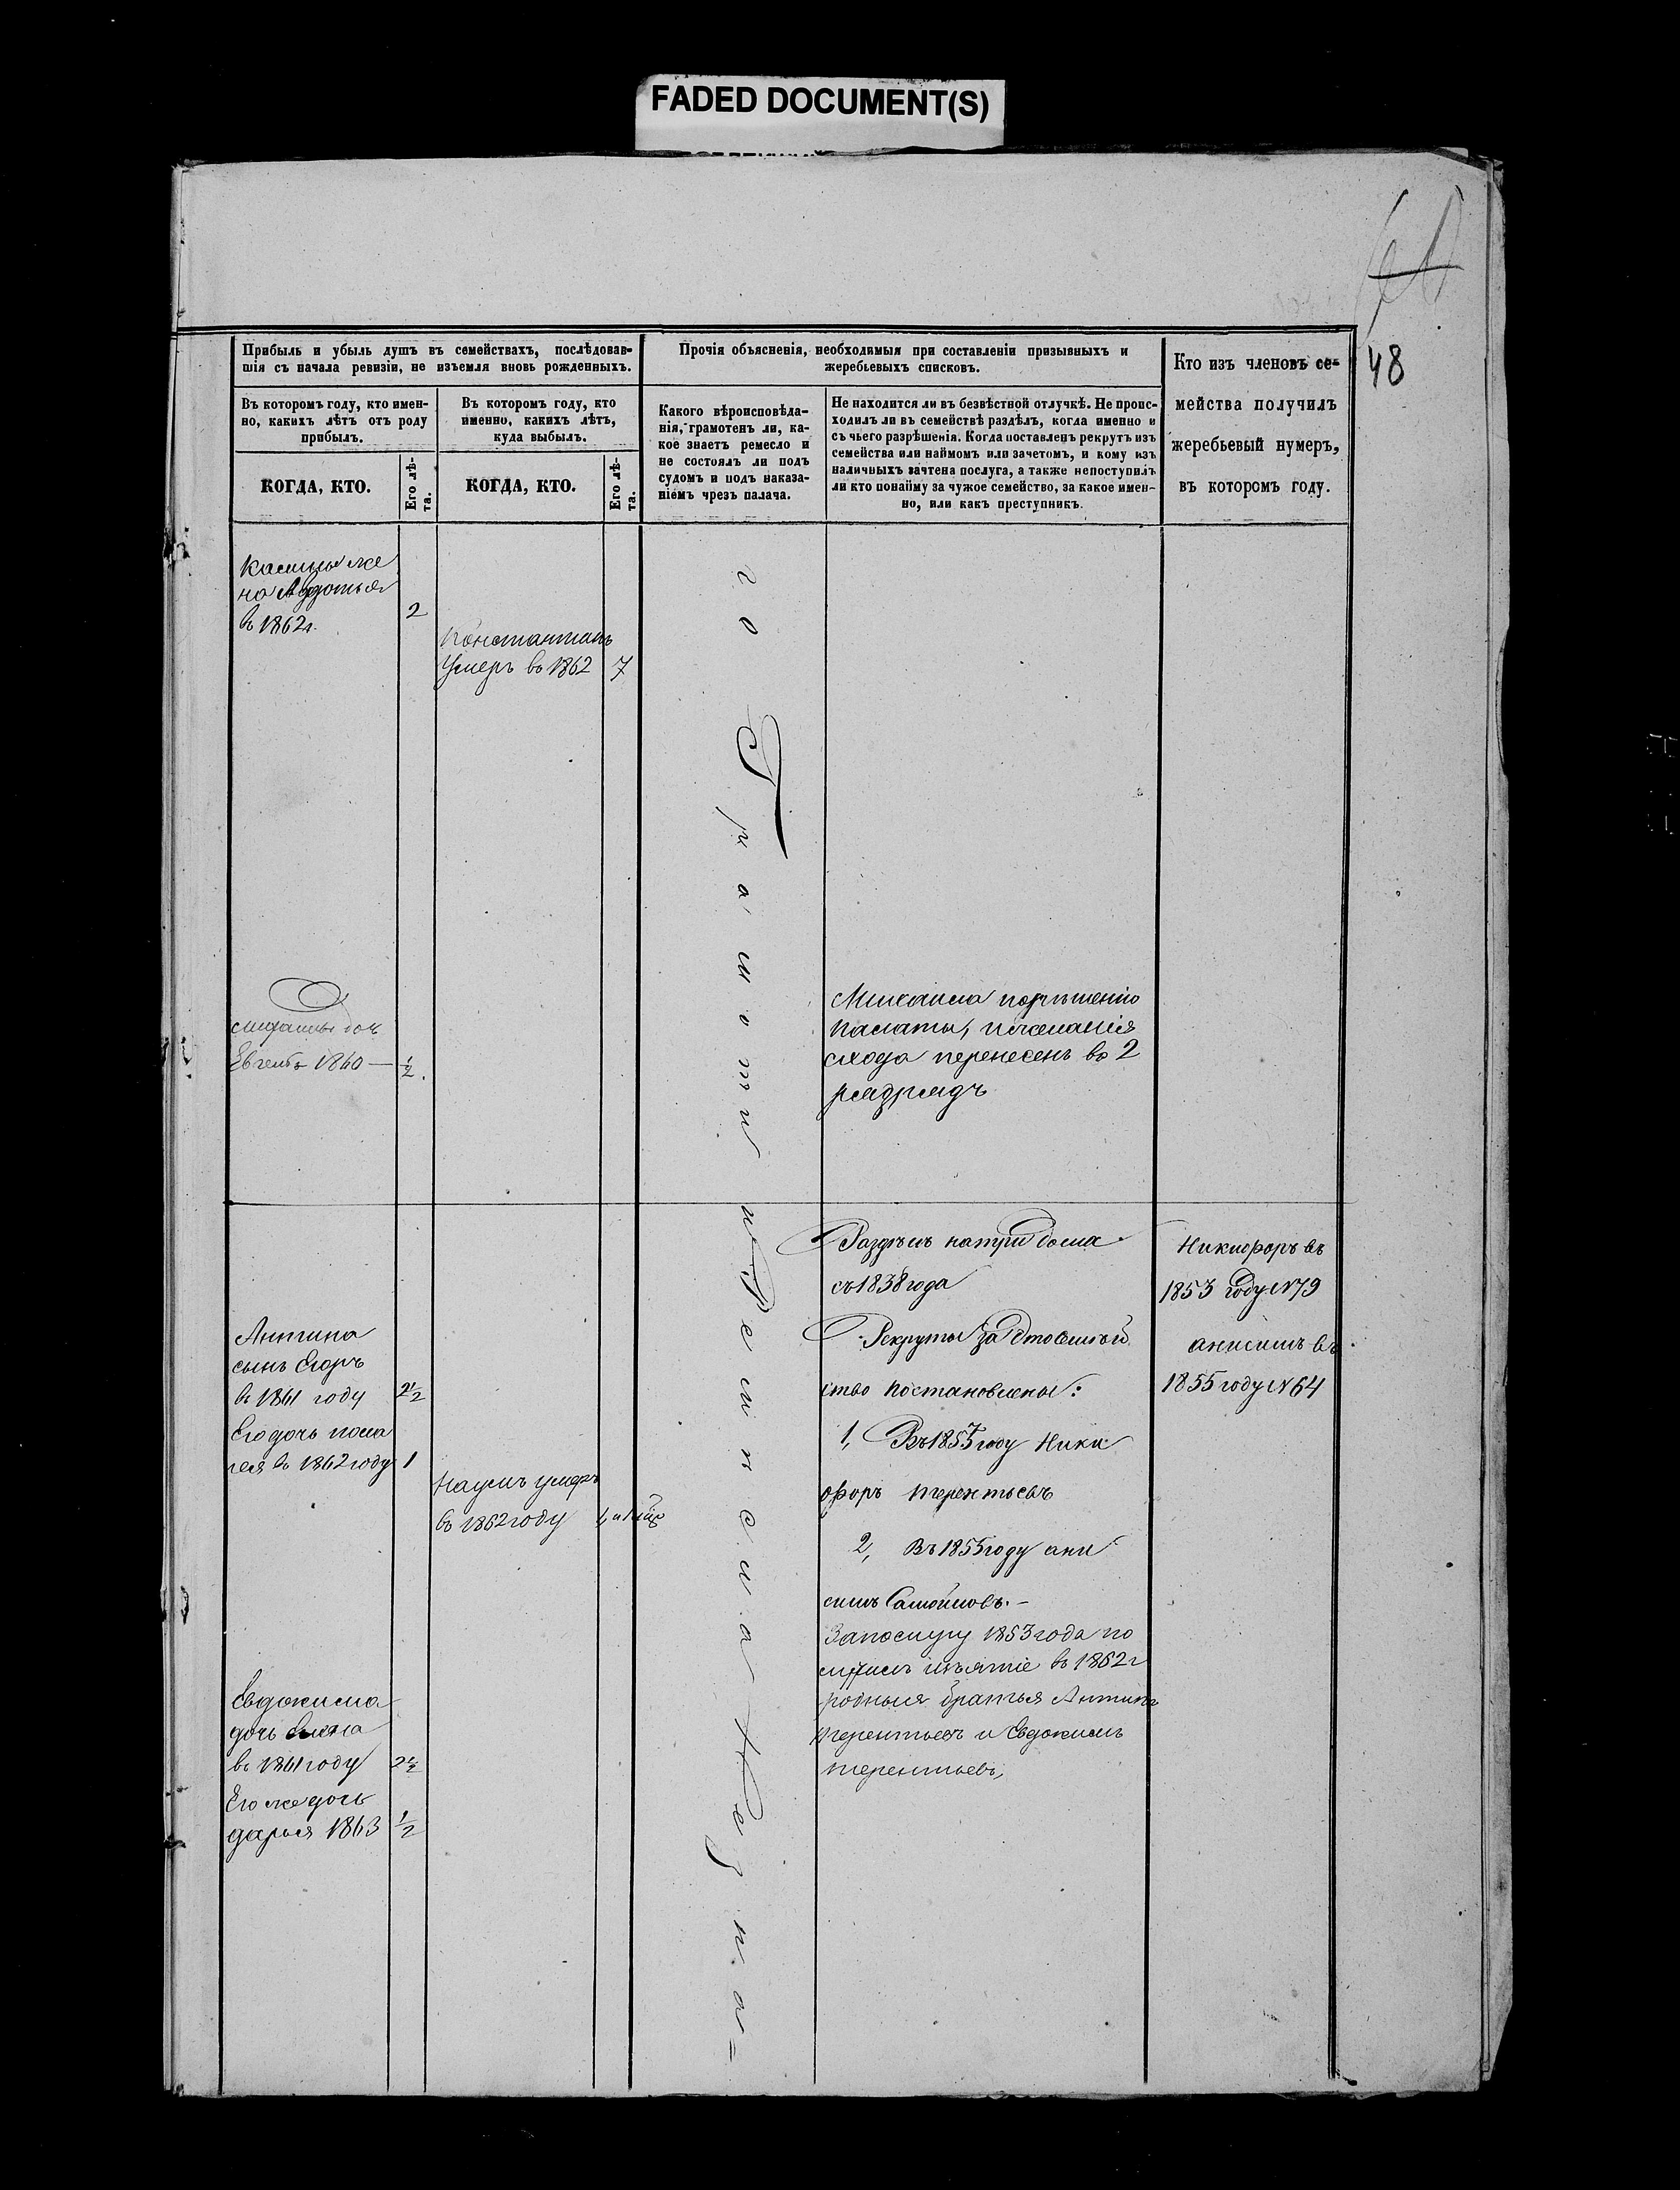 FADED DOCUMENT(S)
48
Прибыль и убыль душъ въ семействахъ, послѣдовав-
шія съ начала ревизіи, не изъемля вновь рожденныхъ.
Въ которомъ году, кто имен-
но, какихъ лѣтъ отъ роду
прибылъ.
КОГДА, КТО.
Его лѣ-
та.
Въ которомъ году, кто
именно, какихъ лѣтъ,
куда выбылъ.
КОГДА, КТО.
Его лѣ-
та.
Прочія объясненія, необходимыя при составленіи призывныхъ и
жеребьевыхъ списковъ.
Какого вѣроисповѣда-
нія, грамотенъ ли, ка-
кое знаетъ ремесло и
не состоялъ ли подъ
судомъ и подъ наказа-
ніемъ чрезъ палача.
Не находится ли въ безвѣстной отлучкѣ. Не проис-
ходилъ ли въ семействѣ раздѣлъ, когда именно и
съ чьего разрѣшенія. Когда поставленъ рекрутъ изъ
семейства или наймомъ или зачетомъ, и кому изъ
наличныхъ зачтена послуга, а также непоступилъ
ли кто понайму за чужое семейство, за какое имен-
но, или какъ преступникъ.
Кто изъ членовъ се-
мейства получилъ
жеребьевый нумеръ,
въ которомъ году.
же
на Авдотья
въ 1862г.
2
Константинъ
Умеръ въ 1862
7
доч
1860 —
1/2.
Антипа
сынъ Егоръ
въ 1861 году
2 1/2
Его дочь
въ 1862 году
1
Наумъ умеръ
въ 1862 году
Евдокима
дочь
въ 1861 году
Его же дочь
дарья 1863
1/2
го Грамоти и Ремисела Незна=
Михаила порѣшенію
палаты,
схода перенесенъ во 2
разрядъ
Раздѣлъ натри дома
съ 1838 года
Рекруты за
ство постановлены:
1, Въ году Ники
форъ терентьевъ
2, Въ 1855 году ани
симъ Самойловъ. —
Запослугу 1853 года по
изъятіе въ 1862г
родныя братья Антипъ
терентьевъ и Евдокимъ
терентьевъ,
Никифоръ въ
1853 году N79
анисимъ въ
1855 году N64